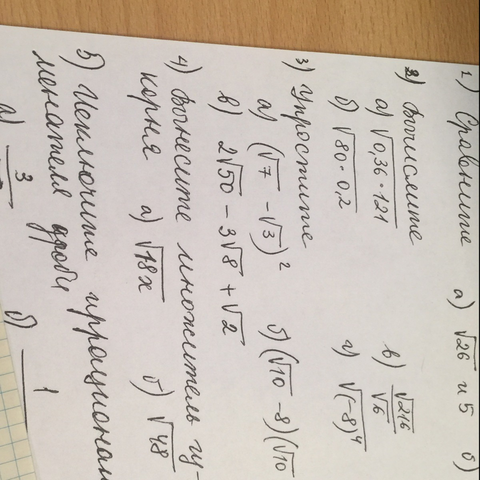 1) Сравните а) √26 и 5 б)
2) Вычислите
а) √0,36·121 в) √216/√6
б) √80·0,2 г) √(-8)⁴
3) Упростите
а) (√7 - √3)² б) (√10 - 8)(√10
в) 2√50 - 3√8 + √2
4) Вынесите множитель
корня а) √18x б) √48
5) Исключите иррационал
менателя дроби
а) 3 б) 1